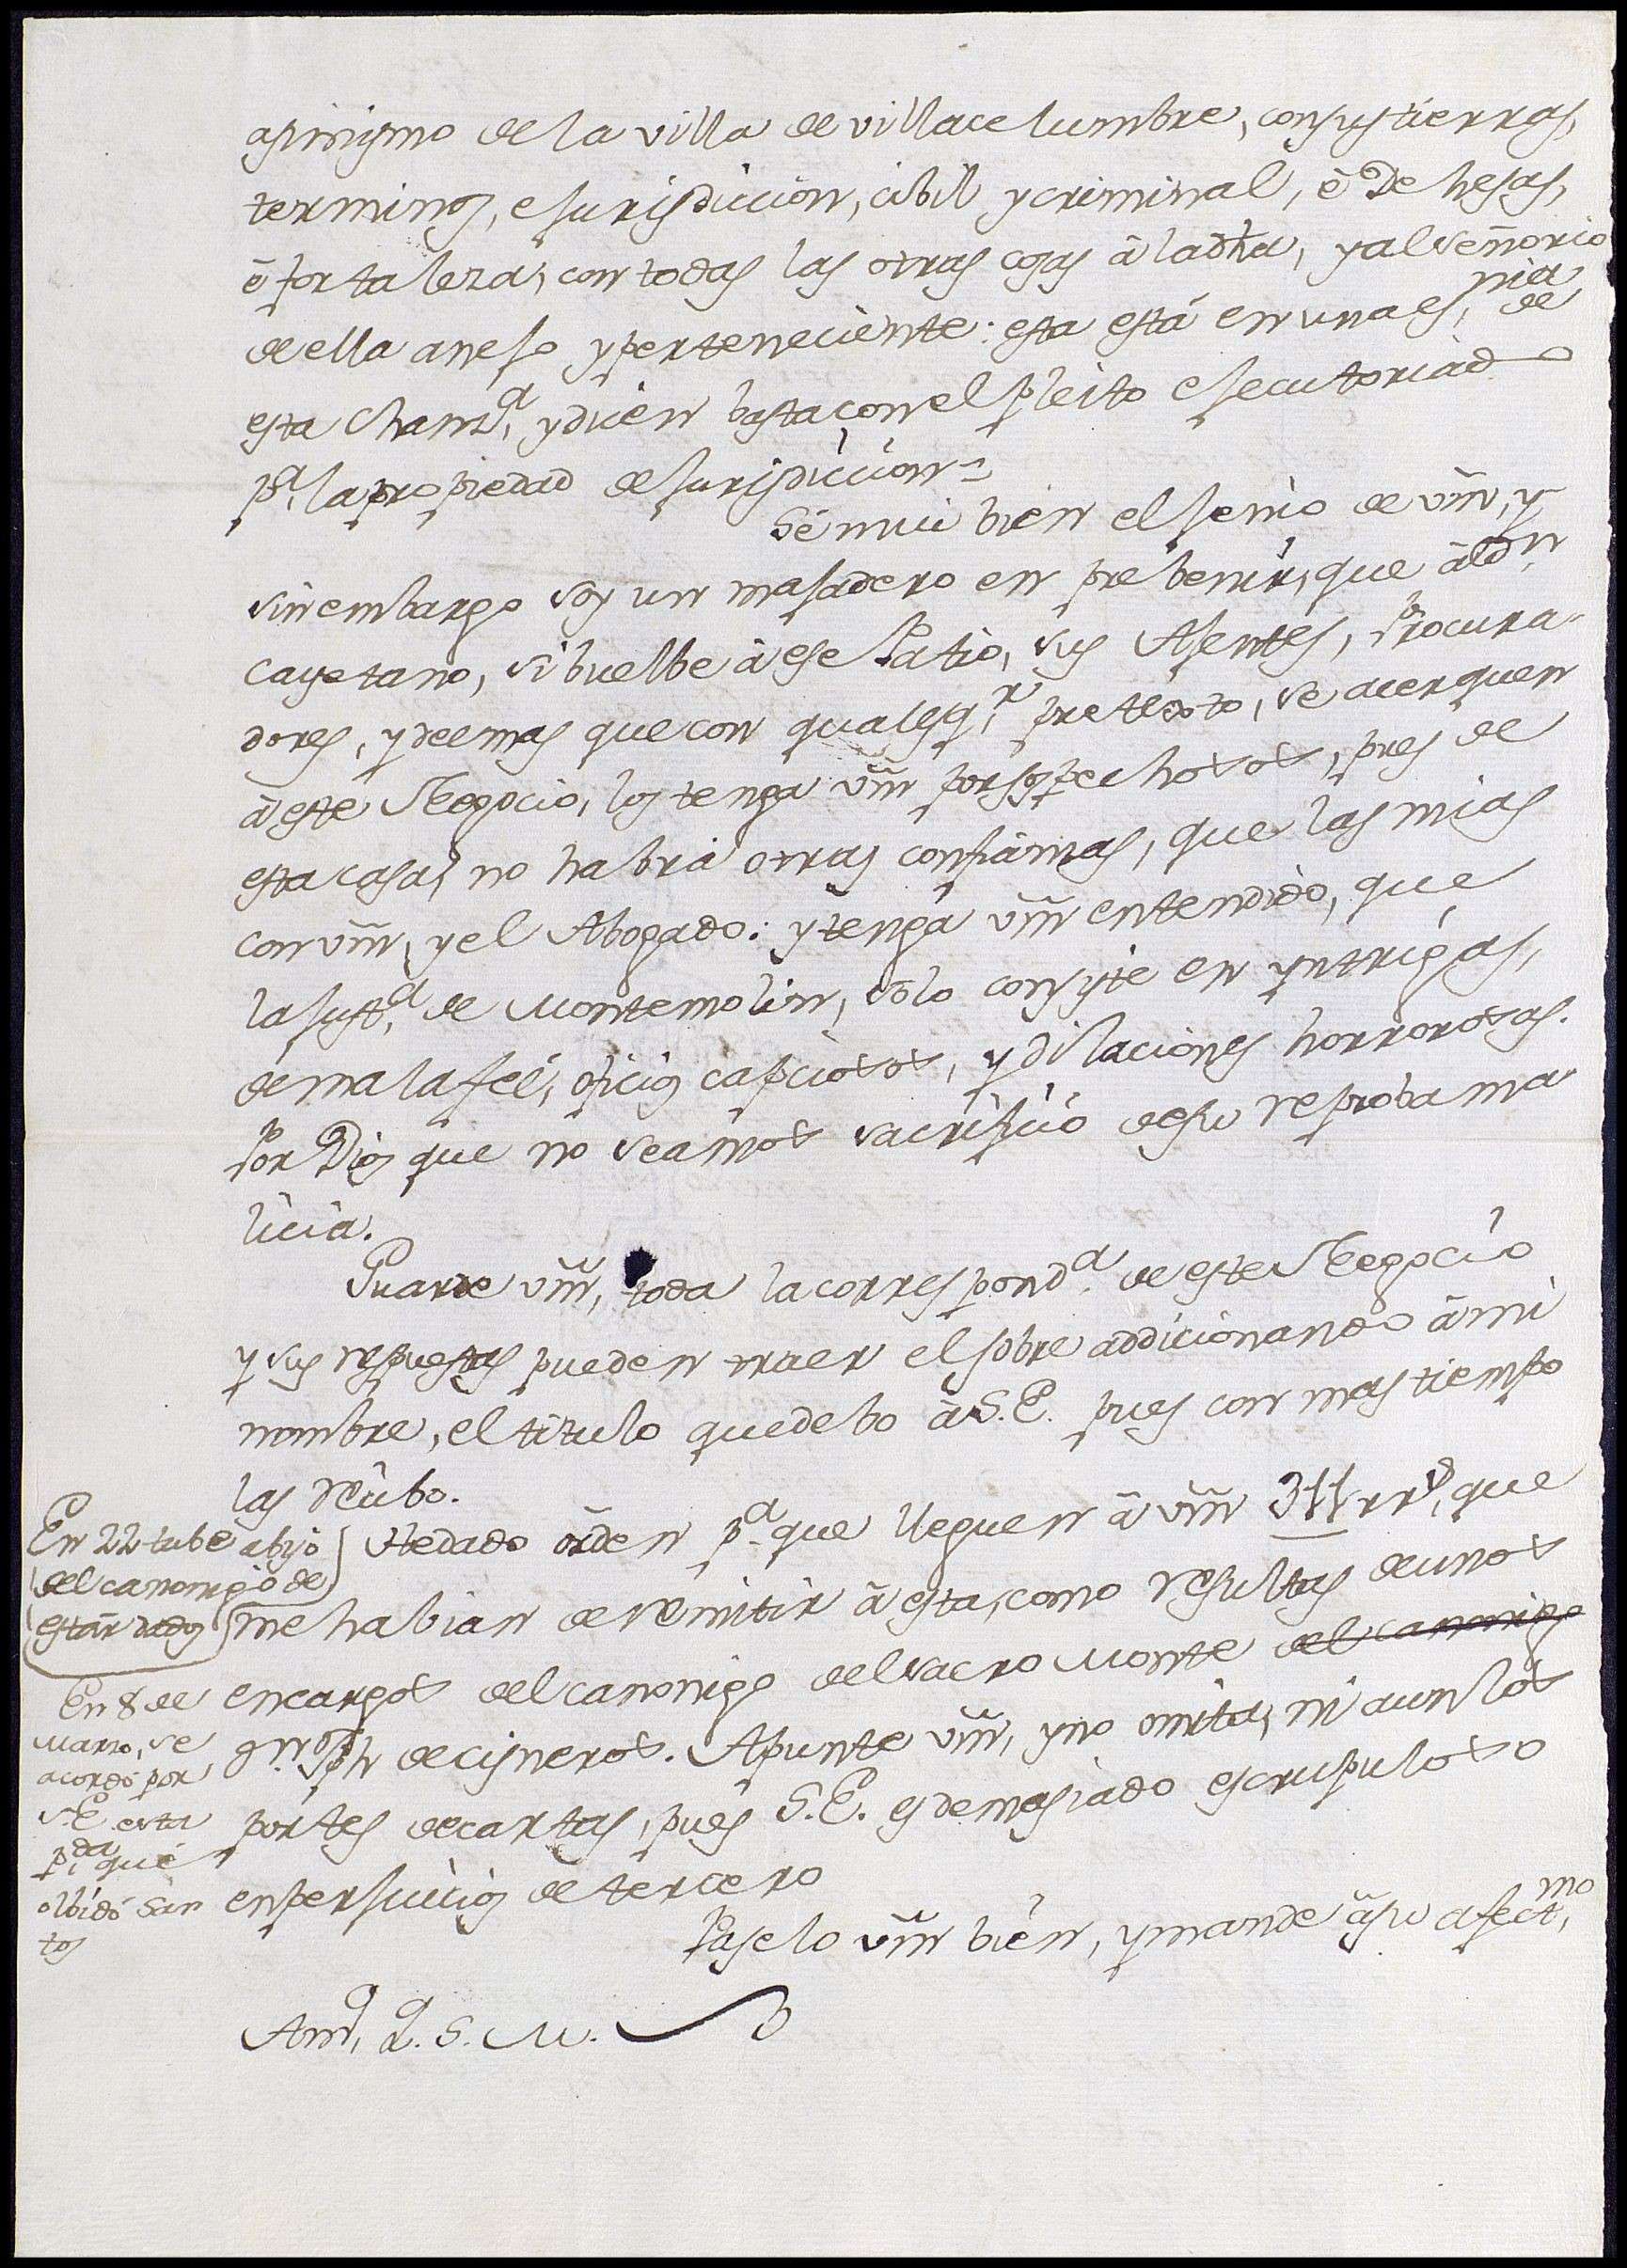 asimismo de la villa de villacelumbre, consus tierras,
terminos, e jurisdiccion, cibil y criminal, è Dehesas,
è fortaleza, con todas las otras cosas â ladħa, yal señorio
de ella anejo ypertenecìente: esta está en una es,,nia de
esta Chanz,,a ydicen basta con el pleito ejecutoriado
p,,a la propiedad de jurisdiccion=
Sé mui bien el jenio de vm̃, y
sin embargo soy un majadero en prebenir, que â d,,n
Cayetano, si buelbe à ese Patio, sus Ajentes, Procura-
dores, ydeemas que con qualesq,,r pretexto, se acerquen
à este Negocio, los tenga vm̃ por sospechosos, pues de
esta casa, no habrà otras confianzas, que las mias
con vm̃, y el Abogado: y tenga vm̃ entendido, que
la just,,a de Montemolin, sólo consiste en yntrigas,
de mala fee, oficios capciosos, y dilaciones horrorosas.
Por Dios que no seamos sacrificio de su reproba ma
licia.
Guarde vm̃, toda la correspond,,a de este Negocio
y sus respuestas pueden traer el sobre addicionando â mi
nombre, el titulo que debo â S.E. pues con mas tiempo
las recibo.
En 22 tube abiso
del canonigo de
estar dados
He dado orden p,,a que lleguen â vm̃ 311 rr,,s que
me habian de remitir â esta, como resultas de unos
encargos del canonigo del sacro Monte del canonigo
d,,n Jph de cisneros. Apunte vm̃, y no omita, ni aun los
portes de cartas, pues S.E. es demasiado escrupuloso
en perjuicios de tercero
En 8 de
Marzo, se
acordó por
S.E. esta
p,,da que
olbidó San
tos
Paselo vm̃ bien, y mande â su afect,,mo
Am,,o Q. S. M.